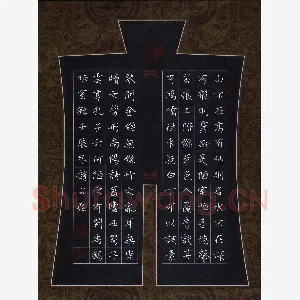 山不在高有仙則名水不在深
有龍則靈斯是陋室惟吾德馨
苔痕上階綠草色入簾青談笑
有鴻儒往來無白丁可以調素
琴閱金經無絲竹之亂耳無案
牘之勞形南陽諸葛廬西蜀子
雲亭孔子云何陋之有劉禹錫
陋室銘